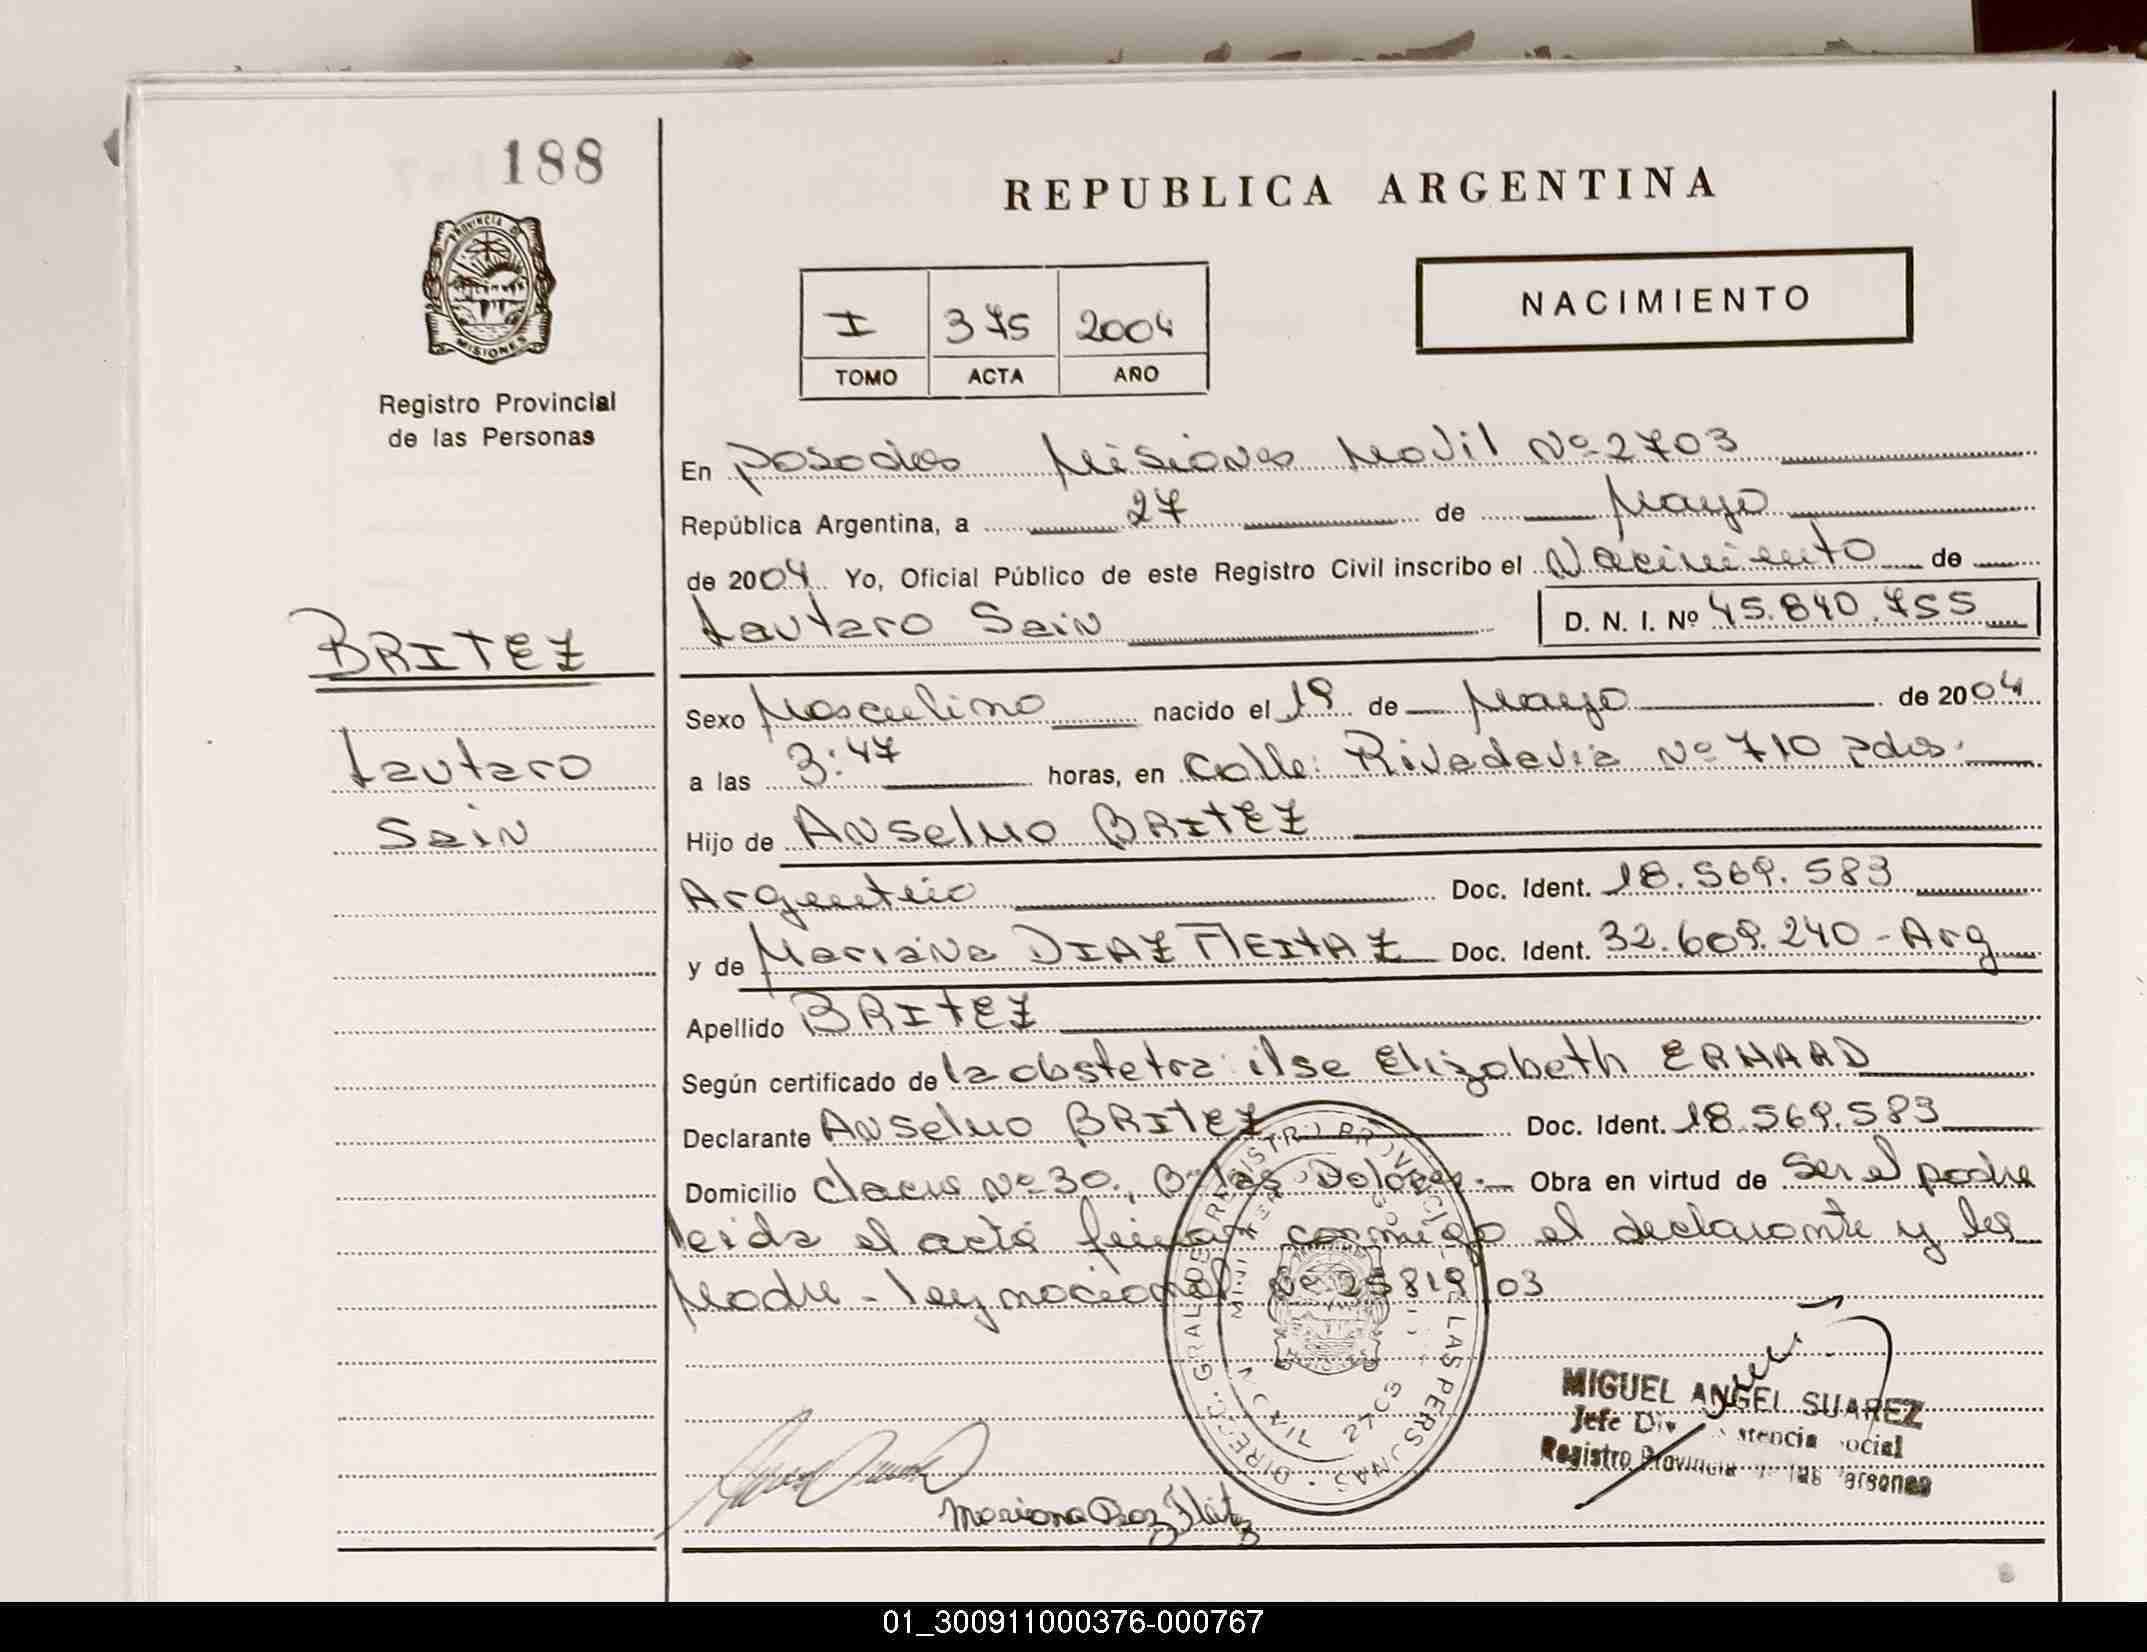 188
REPUBLICA ARGENTINA
PROVINCIA DE
MISIONES
Registro Provincial
de las Personas
I 375 2004
TOMO ACTA AÑO
NACIMIENTO
En Posadas Misiones Movil Nº 2703
República Argentina, a 27 de Mayo
de 2004 Yo, Oficial Público de este Registro Civil inscribo el Nacimiento de
Lautaro Sain D. N. I. Nº 45.840.755
BRITEZ
Lautaro
Sain
Sexo Masculino nacido el 19 de Mayo de 2004
a las 3:47 horas, en Calle: Rivadavia Nº 710 Pdas.
Hijo de Anselmo BRITEZ
Argentino Doc. Ident. 18.569.583
y de Mariana DIAZ Doc. Ident. 32.609.240 - Arg
Apellido BRITEZ
Según certificado de la obstetra: ilse Elizabeth ERHARD
Declarante Anselmo BRITEZ Doc. Ident. 18.569.583
Domicilio Nº 30., Bº las Dolores.- Obra en virtud de Ser el padre
leida el acta firman conmigo el declarante y la
Madre - ley nacional Nº 25819/03
DIREC. GRAL. DE REGISTRO PROVINCIAL DE LAS PERSONAS
CIVIL 2703
MIGUEL ANGEL SUAREZ
Jefe Div. social
Registro Provincial de las Personas
Mariana Diaz
01_300911000376-000767